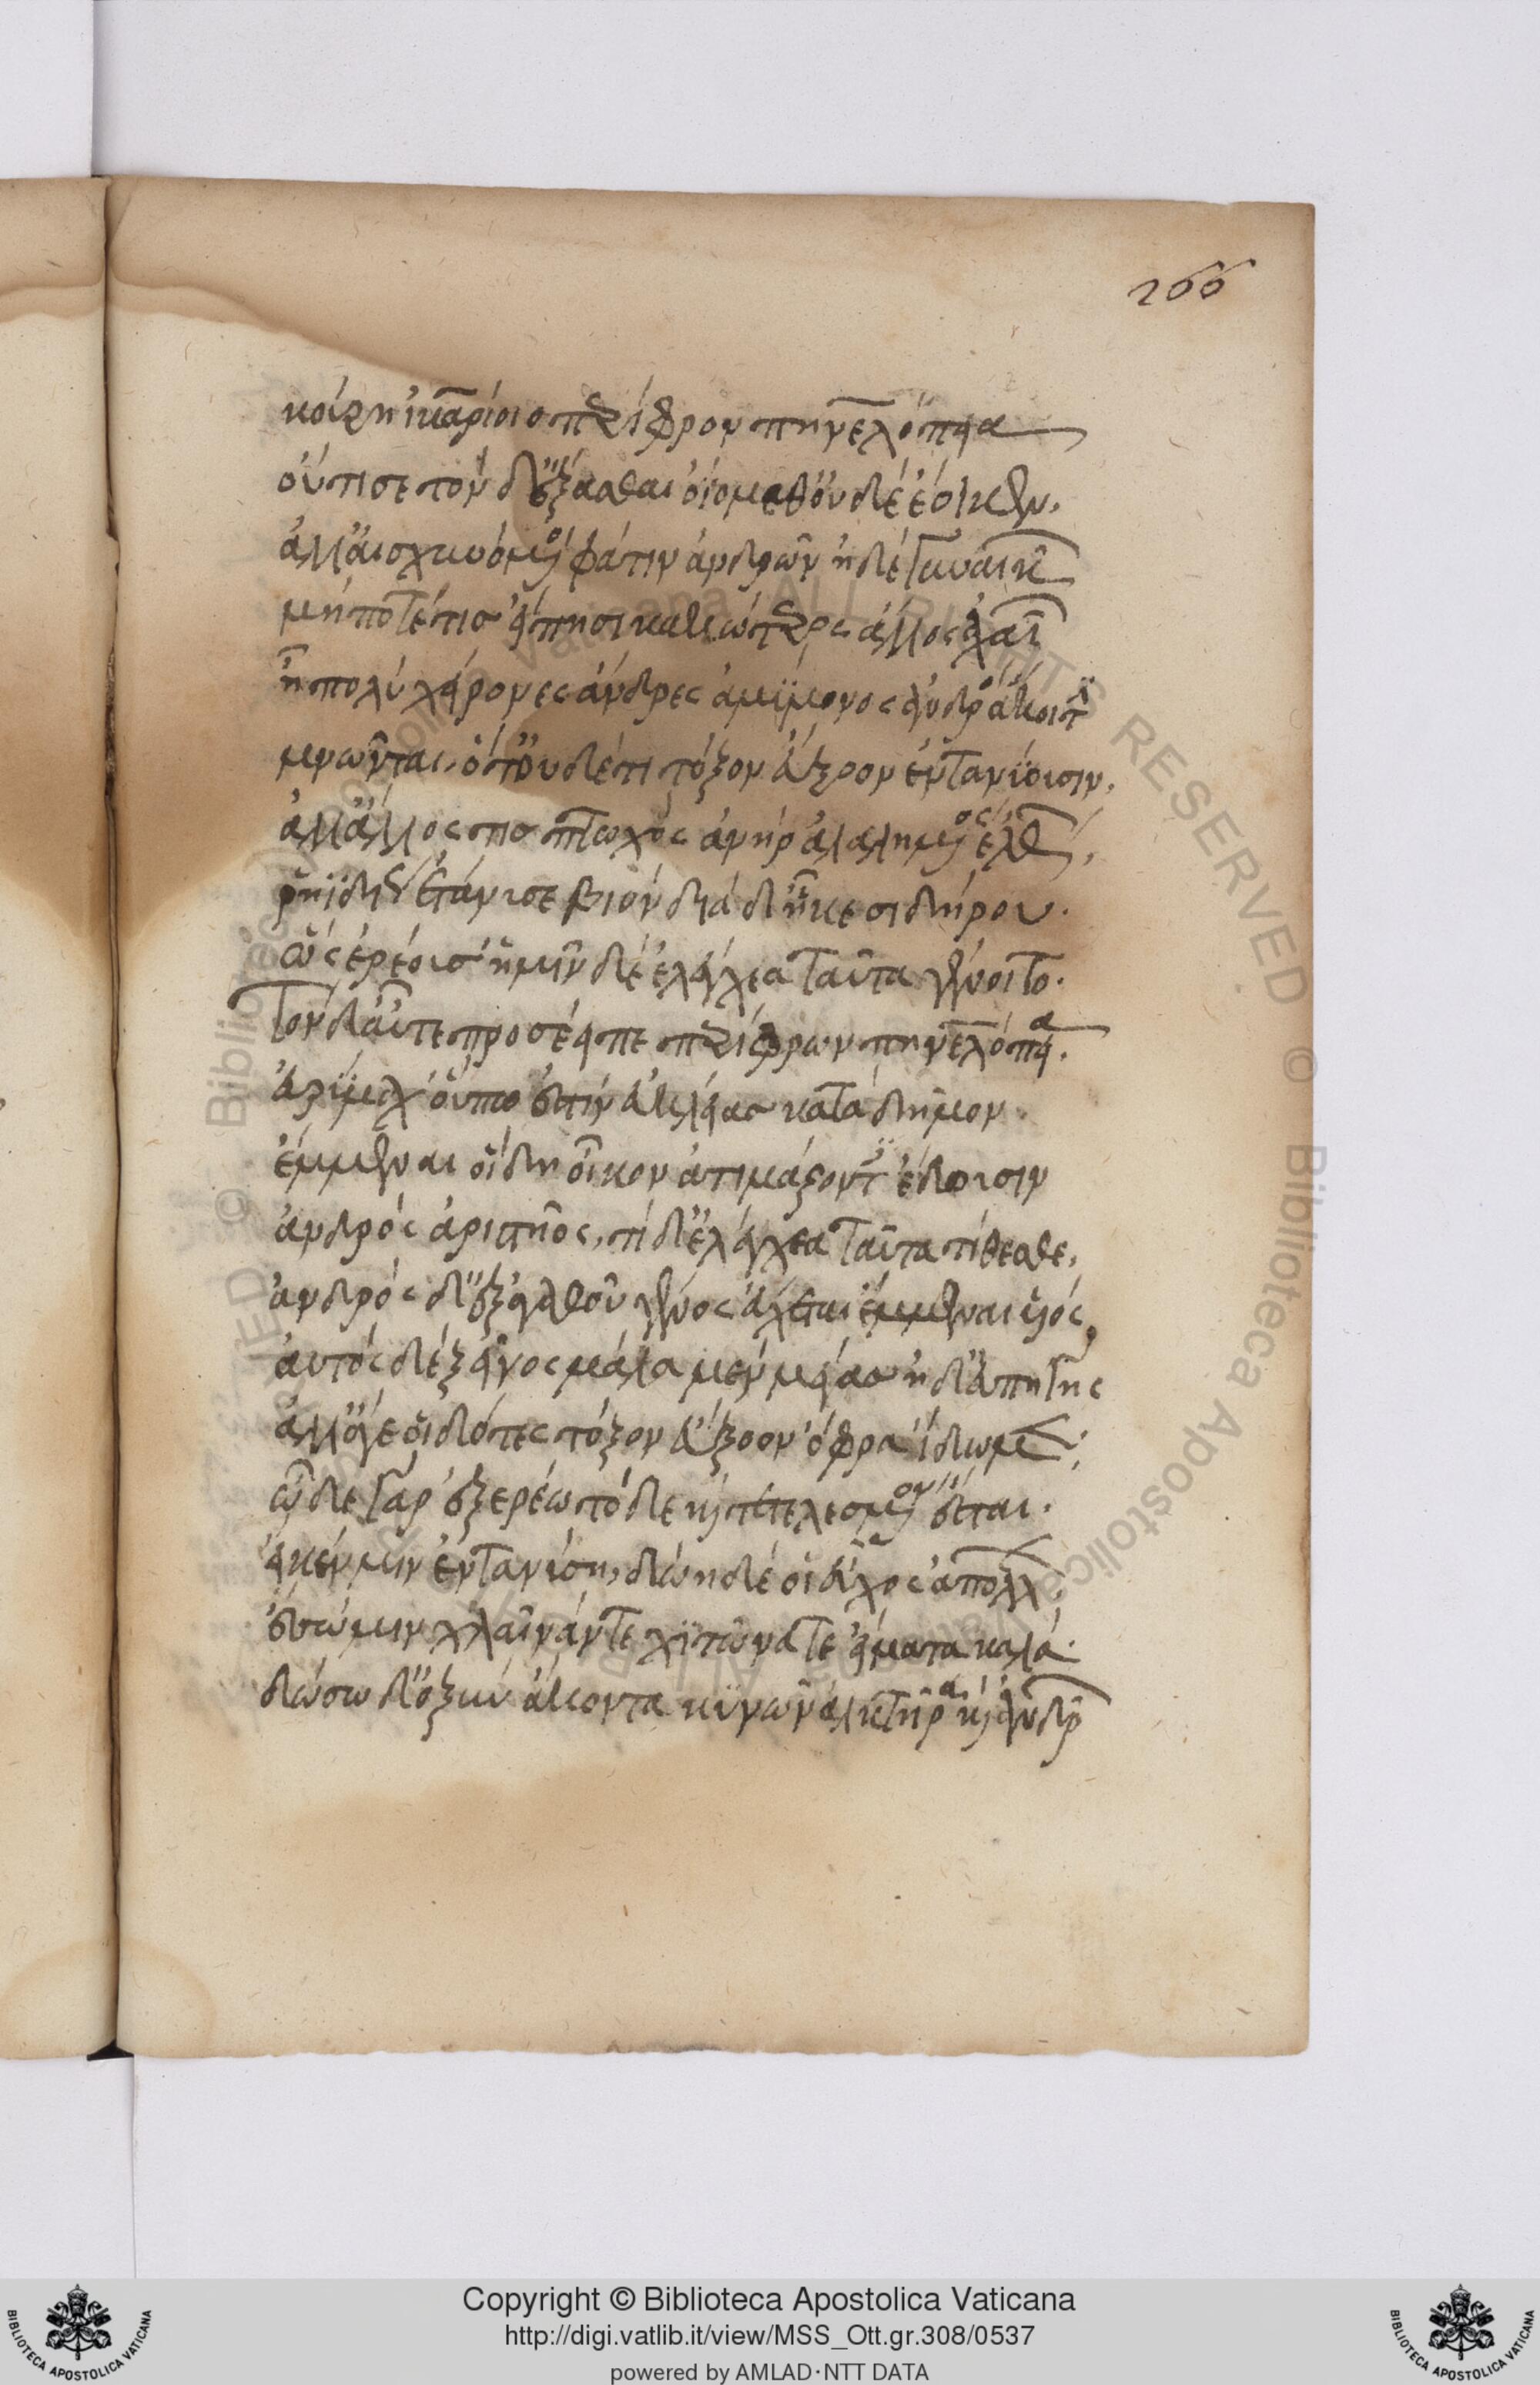 266
κούρη ἰκαρίοιο περίφρον πηνελόπεια
οὔτι σε τόνδ' ἄξασθαι ὀϊόμεθ' οὐδὲ ἔοικεν.
ἀλλ' αἰσχυνόμενοι φάτιν ἀνδρῶν ἠδὲ γυναικῶν
μήποτέ τις εἴπησι κακώτερος ἄλλος ἀχαιῶν
ἦ πολὺ χείρονες ἄνδρες ἀμύμονος ἀνδρὸς ἄκοιτιν
μνῶνται, οὐδέ τι τόξον ἐΰξοον ἐντανύουσιν.
ἀλλ' ἄλλος τις πτωχὸς ἀνὴρ ἀλαλήμενος ἐλθών,
ῥηϊδίως ἐτάνυσε βιὸν διὰ δ' ἧκε σιδήρου.
ὣς ἐρέουσ' ἡμῖν δὲ ἐλέγχεα ταῦτα γένοιτο.
Τὸν δ' αὖτε προσέειπε περίφρων πηνελόπεια.
εὐρύμαχ' οὔπως ἐστὶν ἐϋκλείας κατὰ δῆμον.
ἔμμεναι οἳ δὴ οἶκον ἀτιμάζοντες ἔδουσιν
ἀνδρὸς ἀριστῆος, τί δ' ἐλέγχεα ταῦτα τίθεσθε,
ἀνδρὸς δ' ἐξ ἀγαθοῦ γένος εὔχεται ἔμμεναι υἱός,
αὐτὸς δὲ ξεῖνος μάλα μὲν μέγας ἠδ' εὐπηγὴς
ἀλλ' ἄγε οἱ δότε τόξον ἐΰξοον ὄφρα ἴδωμεν.
ὧδε γὰρ ἐξερέω τόδε καὶ τετελεσμένον ἔσται.
εἴ κέν μιν ἐντανύση, δώη δέ οἱ εὖχος ἀπόλλων,
ἕσσω μιν χλαῖνάν τε χιτῶνά τε εἵματα καλά.
δώσω δ' ὀξὺν ἄκοντα κυνῶν ἀλκτῆρα καὶ ἀνδρῶν
Copyright © Biblioteca Apostolica Vaticana
http://digi.vatlib.it/view/MSS_Ott.gr.308/0537
powered by AMLAD·NTT DATA
BIBLIOTECA APOSTOLICA VATICANA
BIBLIOTECA APOSTOLICA VATICANA